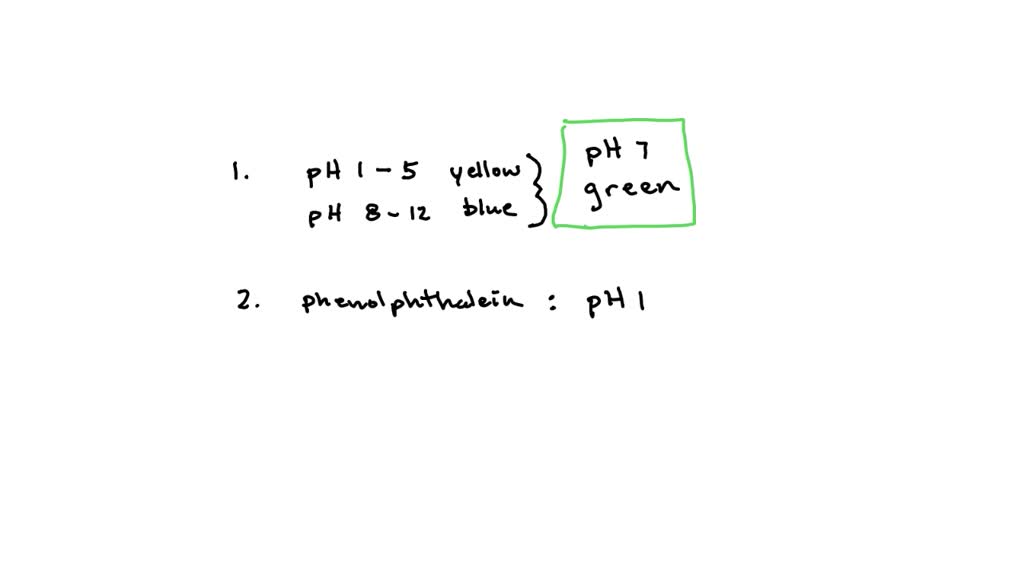 1. pH 1 - 5 yellow
pH 8 - 12 blue
pH 7
green
2. phenolphthalein : pH 1